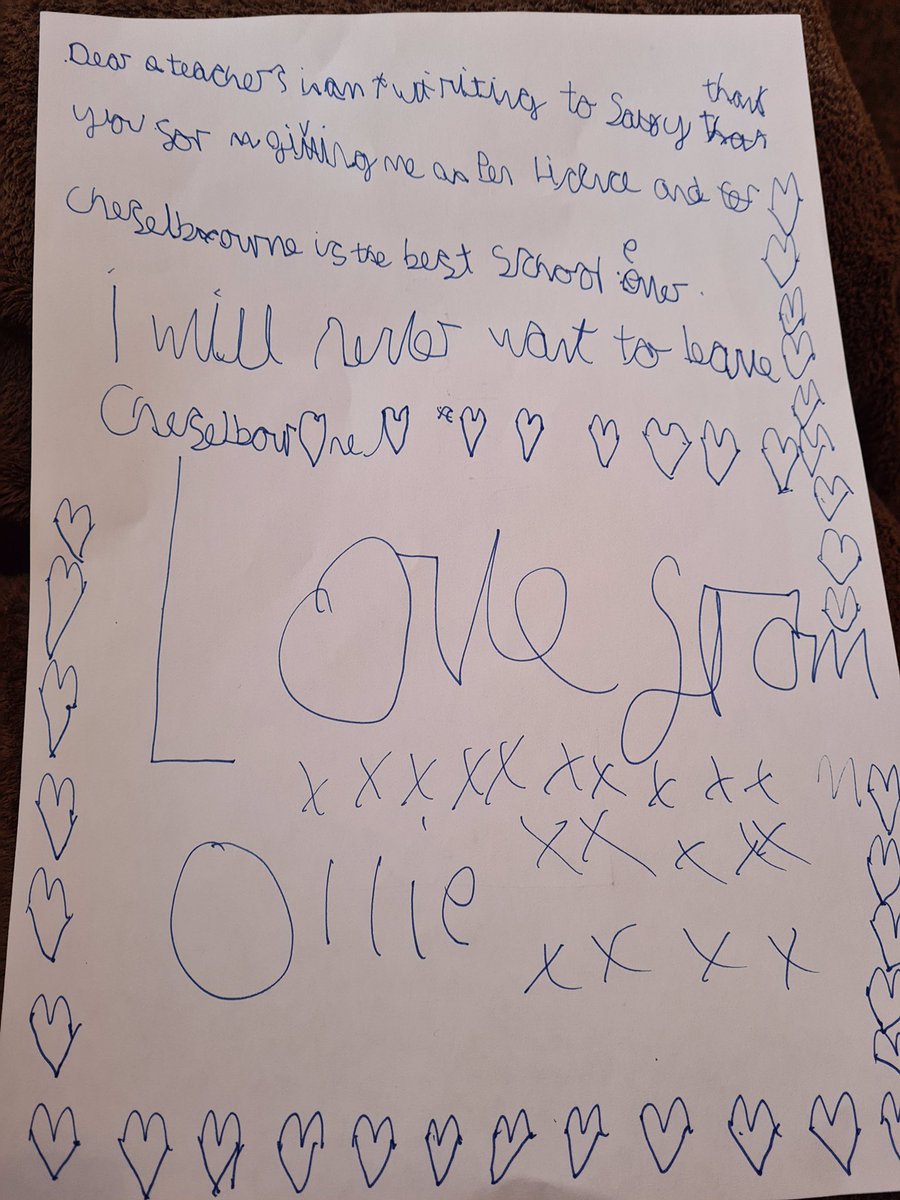 Dear a teachers i wan t writing to Sary thank
you for giving me a Pen Licence and for
Cheselbourne is the best School ever.
i will never want to leave
Cheselbourne
Love from
x x x xx xx x x x
Ollie xx x xx
x x x x